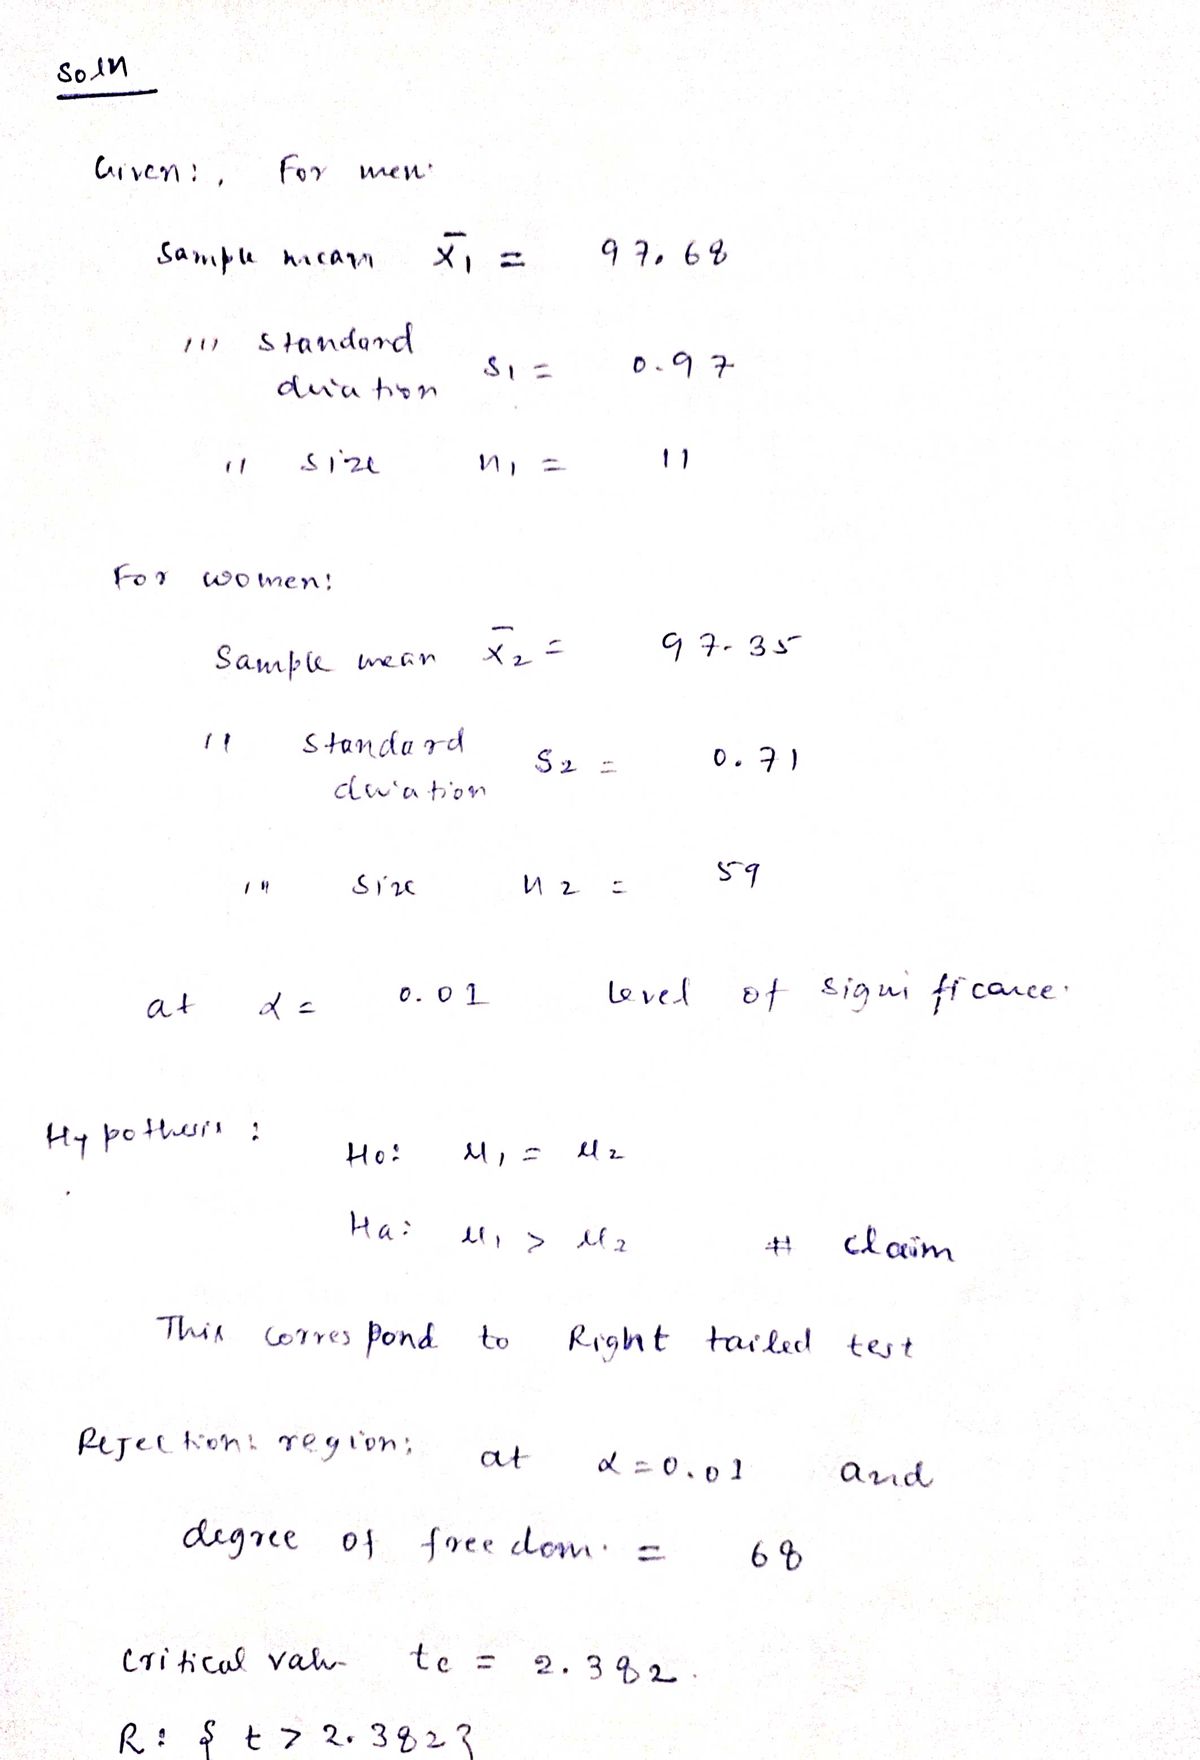 Soln
Given:, For men.
Sample mean x̄₁ = 97.68
''' Standard deviation s₁ = 0.97
'' size n₁ = 11
For women:
Sample mean x̄₂ = 97.35
'' Standard deviation s₂ = 0.71
''' size n₂ = 59
at α = 0.01 level of significance.
Hypothesis:
H₀: μ₁ = μ₂
Ha: μ₁ > μ₂ # claim
This correspond to Right tailed test
Rejection: region: at α = 0.01 and
degree of freedom. = 68
Critical value tc = 2.382.
R: { t > 2.382}